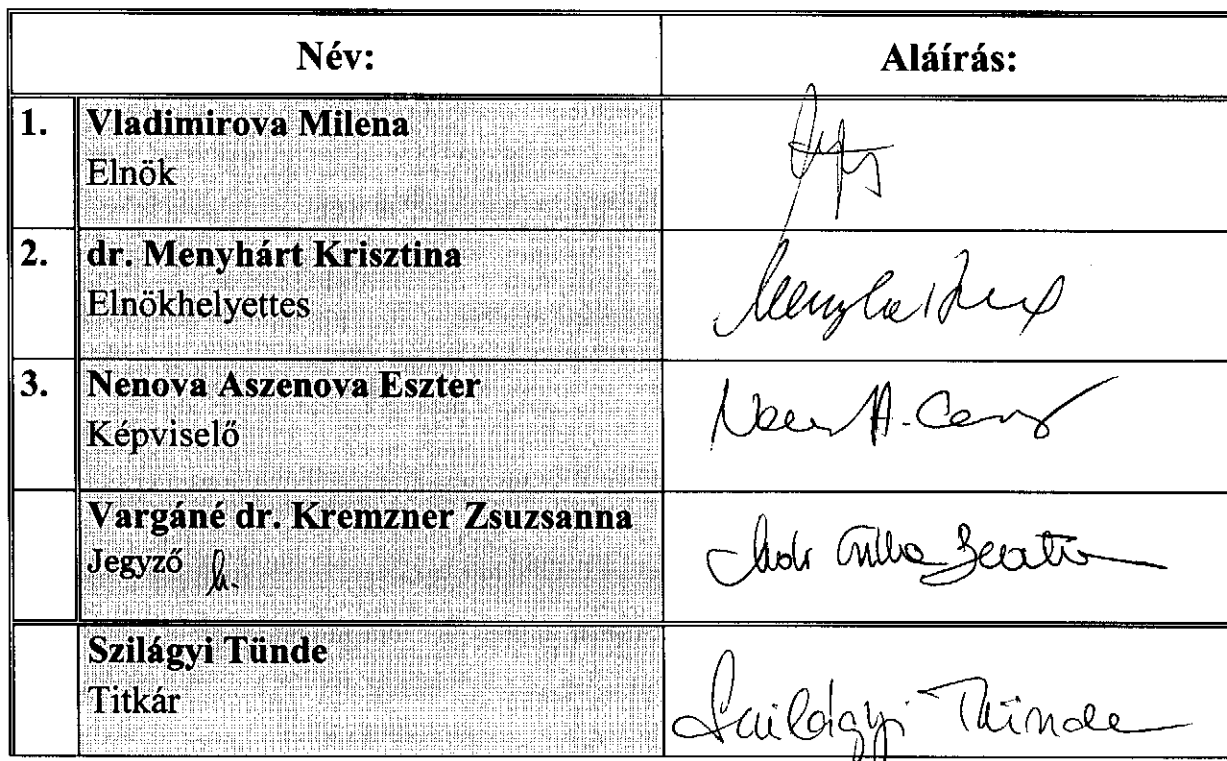 Név: Aláírás:
1. Vladimirova Milena
Elnök
2. dr. Menyhárt Krisztina
Elnökhelyettes
3. Nenova Aszenova Eszter
Képviselő
Vargáné dr. Kremzner Zsuzsanna
Jegyző h.
Szilágyi Tünde
Titkár
Szilágyi Tünde